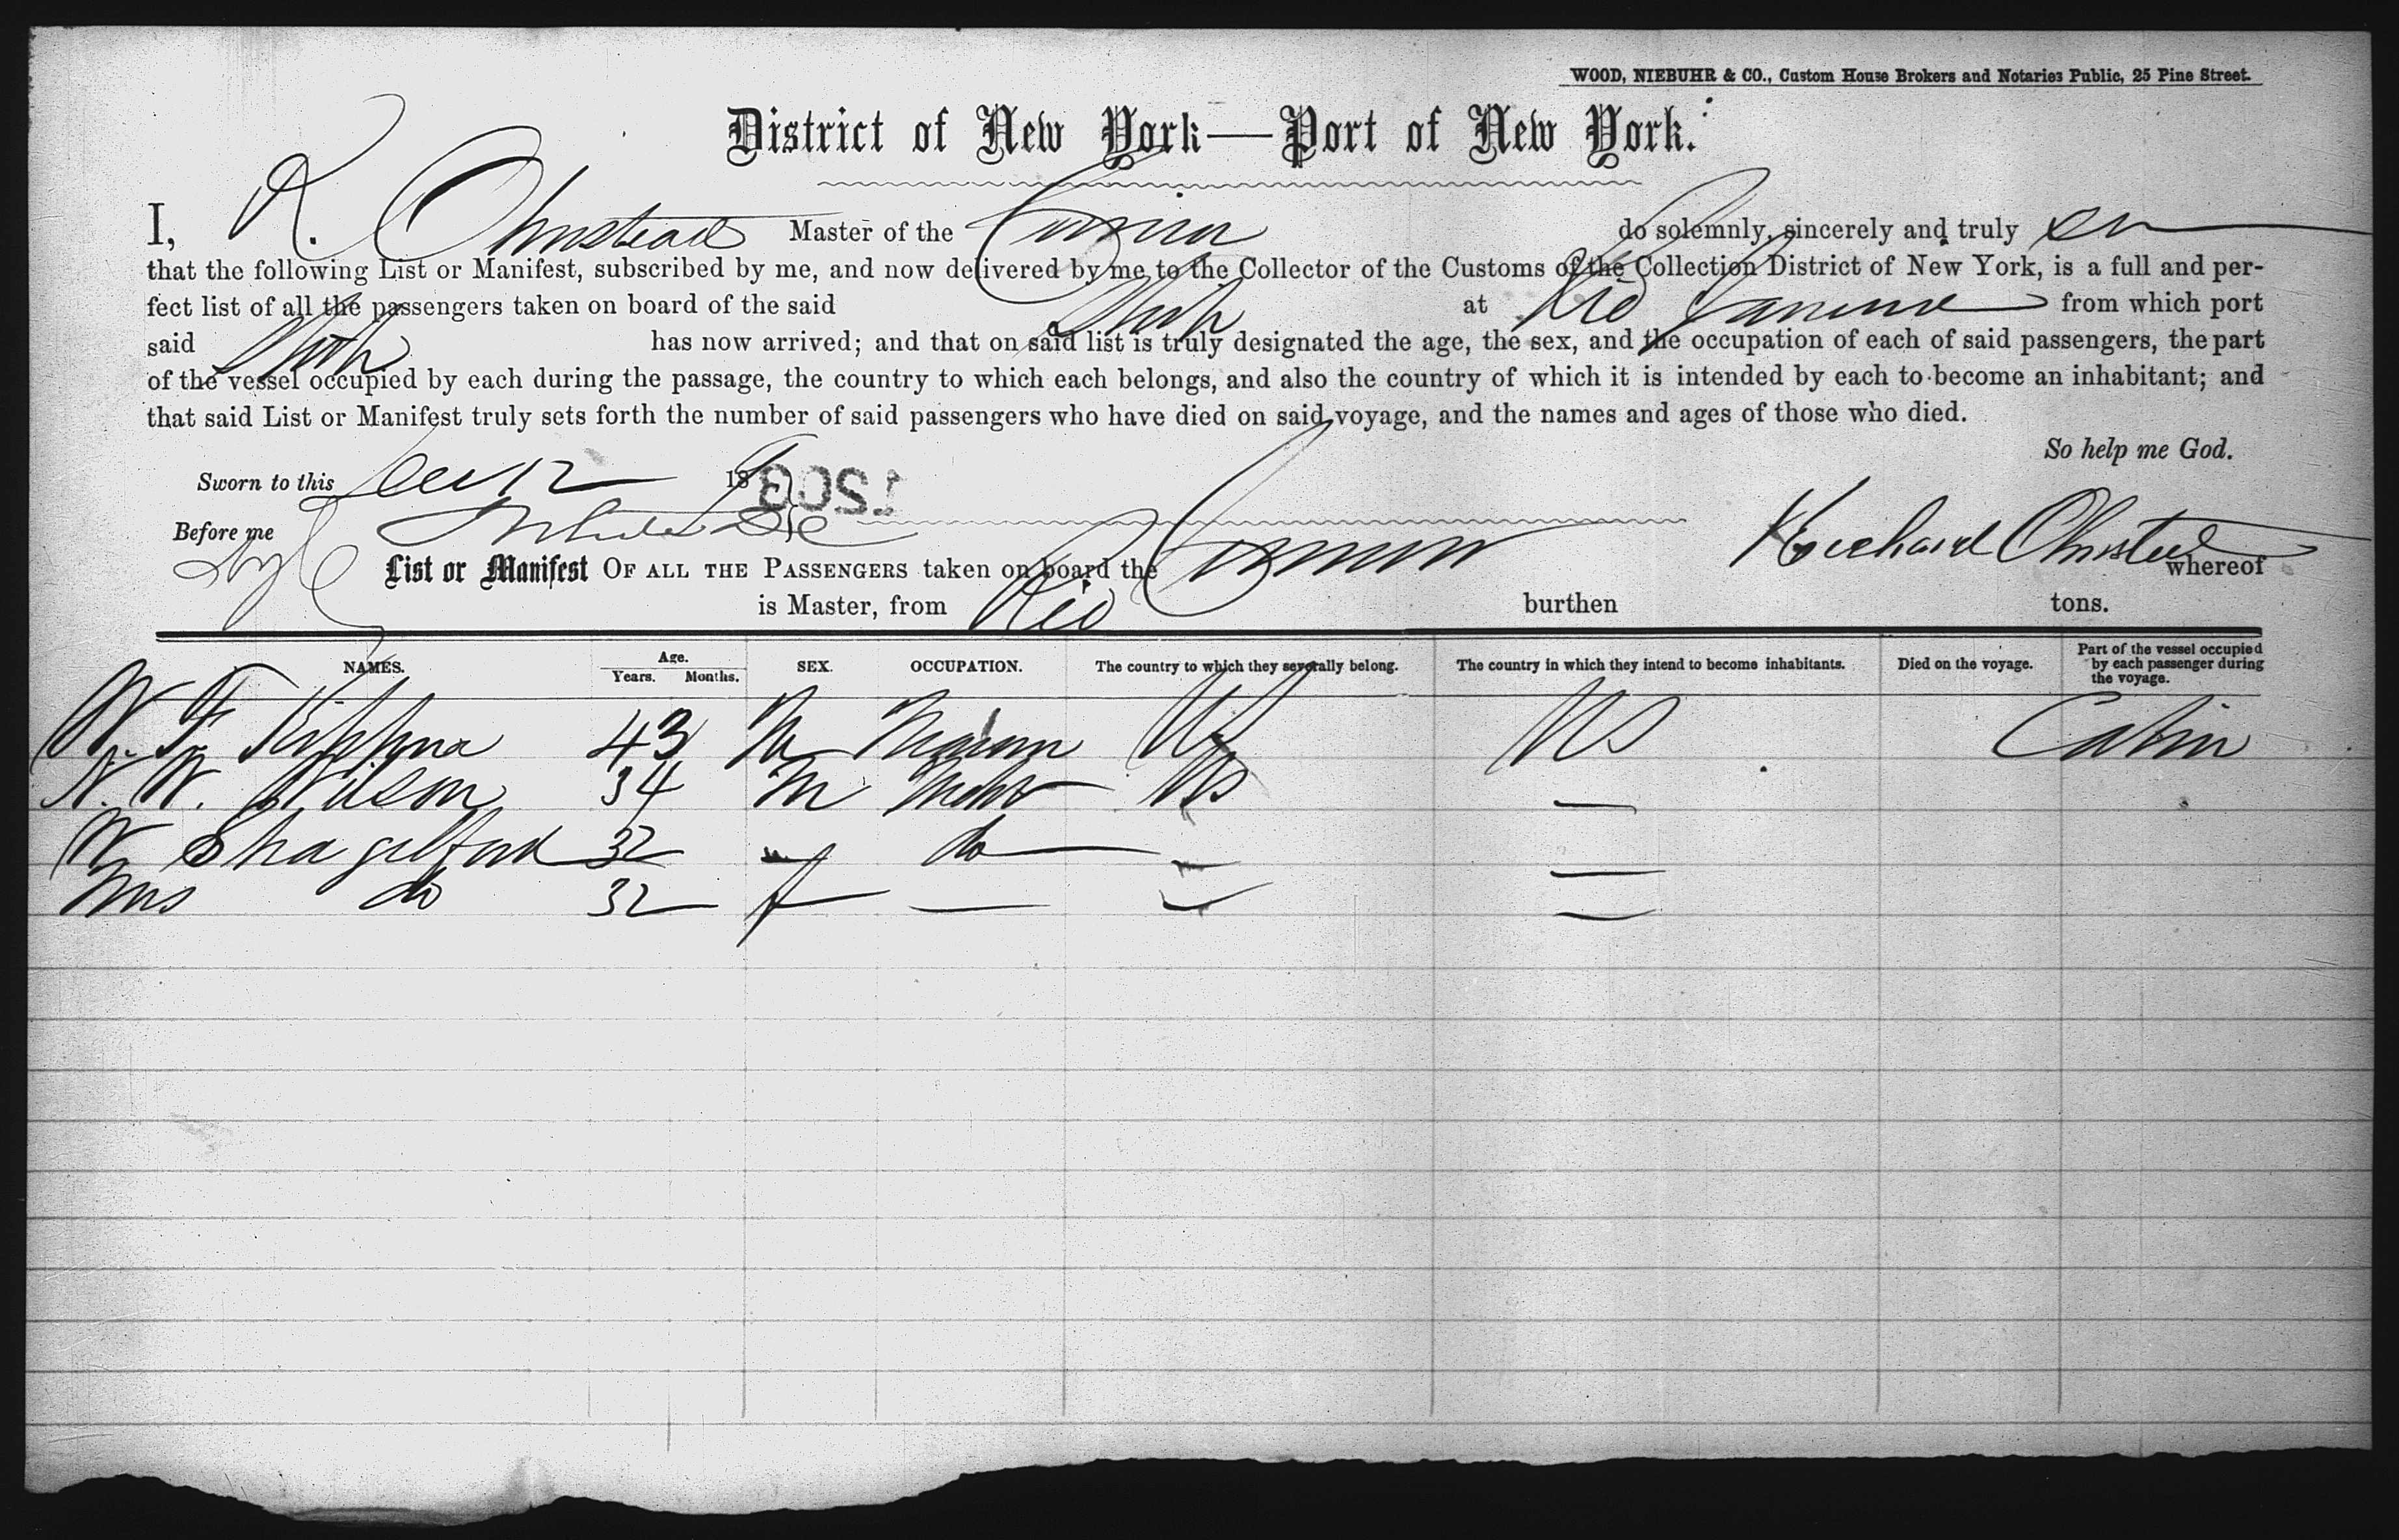 WOOD, NIEBUHR & CO., Custom House Brokers and Notaries Public, 25 Pine Street.
District of New York—Port of New York.
I, R. Olmstead Master of the do solemnly, sincerely and truly
that the following List or Manifest, subscribed by me, and now delivered by me to the Collector of the Customs of the Collection District of New York, is a full and per-
fect list of all the passengers taken on board of the said at Rio from which port
said has now arrived; and that on said list is truly designated the age, the sex, and the occupation of each of said passengers, the part
of the vessel occupied by each during the passage, the country to which each belongs, and also the country of which it is intended by each to become an inhabitant; and
that said List or Manifest truly sets forth the number of said passengers who have died on said voyage, and the names and ages of those who died.
So help me God.
Sworn to this Dec 12 18 9
1203
Before me
Richard Olmstead
List or Manifest OF ALL THE PASSENGERS taken on board the whereof
is Master, from Rio burthen tons.
NAMES. Age. Years. Months. SEX. OCCUPATION. The country to which they severally belong. The country in which they intend to become inhabitants. Died on the voyage. Part of the vessel occupied by each passenger during the voyage.
W. F. 43 M US US Cabin
N. W. Wilson 34 M US —
W 32 do — — —
Mrs do 32 f — — —